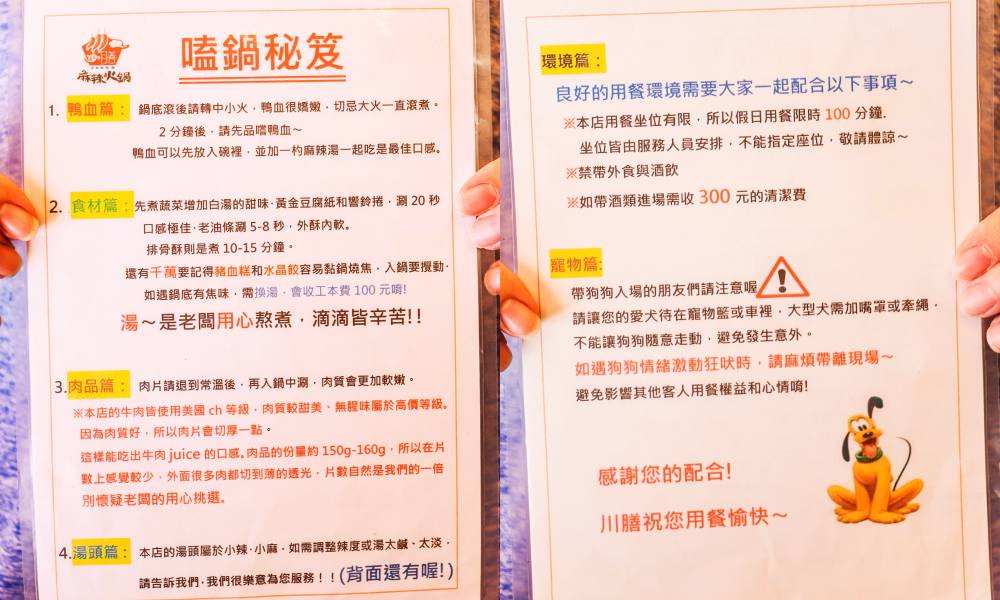 麻辣火鍋
嗑鍋秘笈
1. 鴨血篇： 鍋底滾後請轉中小火，鴨血很嬌嫩，切忌大火一直滾煮。
2 分鐘後，請先品嚐鴨血～
鴨血可以先放入碗裡，並加一杓麻辣湯一起吃是最佳口感。
2. 食材篇：先煮蔬菜增加白湯的甜味·黃金豆腐紙和響鈴捲，涮 20 秒
口感極佳·老油條涮 5-8 秒，外酥內軟。
排骨酥則是煮 10-15 分鐘。
還有千萬要記得豬血糕和水晶餃容易黏鍋燒焦，入鍋要攪動·
如遇鍋底有焦味，需換湯，會收工本費 100 元唷!
湯～是老闆用心熬煮，滴滴皆辛苦!!
3.肉品篇： 肉片請退到常溫後，再入鍋中涮，肉質會更加軟嫩。
※本店的牛肉皆使用美國 ch 等級，肉質較甜美、無腥味屬於高價等級。
因為肉質好，所以肉片會切厚一點。
這樣能吃出牛肉 juice 的口感。肉品的份量約 150g-160g，所以在片
數上感覺較少，外面很多肉都切到薄的透光，片數自然是我們的一倍
別懷疑老闆的用心挑選。
4.湯頭篇： 本店的湯頭屬於小辣·小麻，如需調整辣度或湯太鹹、太淡，
請告訴我們·我們很樂意為您服務！！(背面還有喔!)
環境篇：
良好的用餐環境需要大家一起配合以下事項～
※本店用餐坐位有限，所以假日用餐限時 100 分鐘.
坐位皆由服務人員安排，不能指定座位，敬請體諒～
※禁帶外食與酒飲
※如帶酒類進場需收 300 元的清潔費
寵物篇:
帶狗狗入場的朋友們請注意喔
請讓您的愛犬待在寵物籃或車裡，大型犬需加嘴罩或牽繩，
不能讓狗狗隨意走動，避免發生意外。
如遇狗狗情緒激動狂吠時，請麻煩帶離現場～
避免影響其他客人用餐權益和心情唷!
感謝您的配合!
川膳祝您用餐愉快～